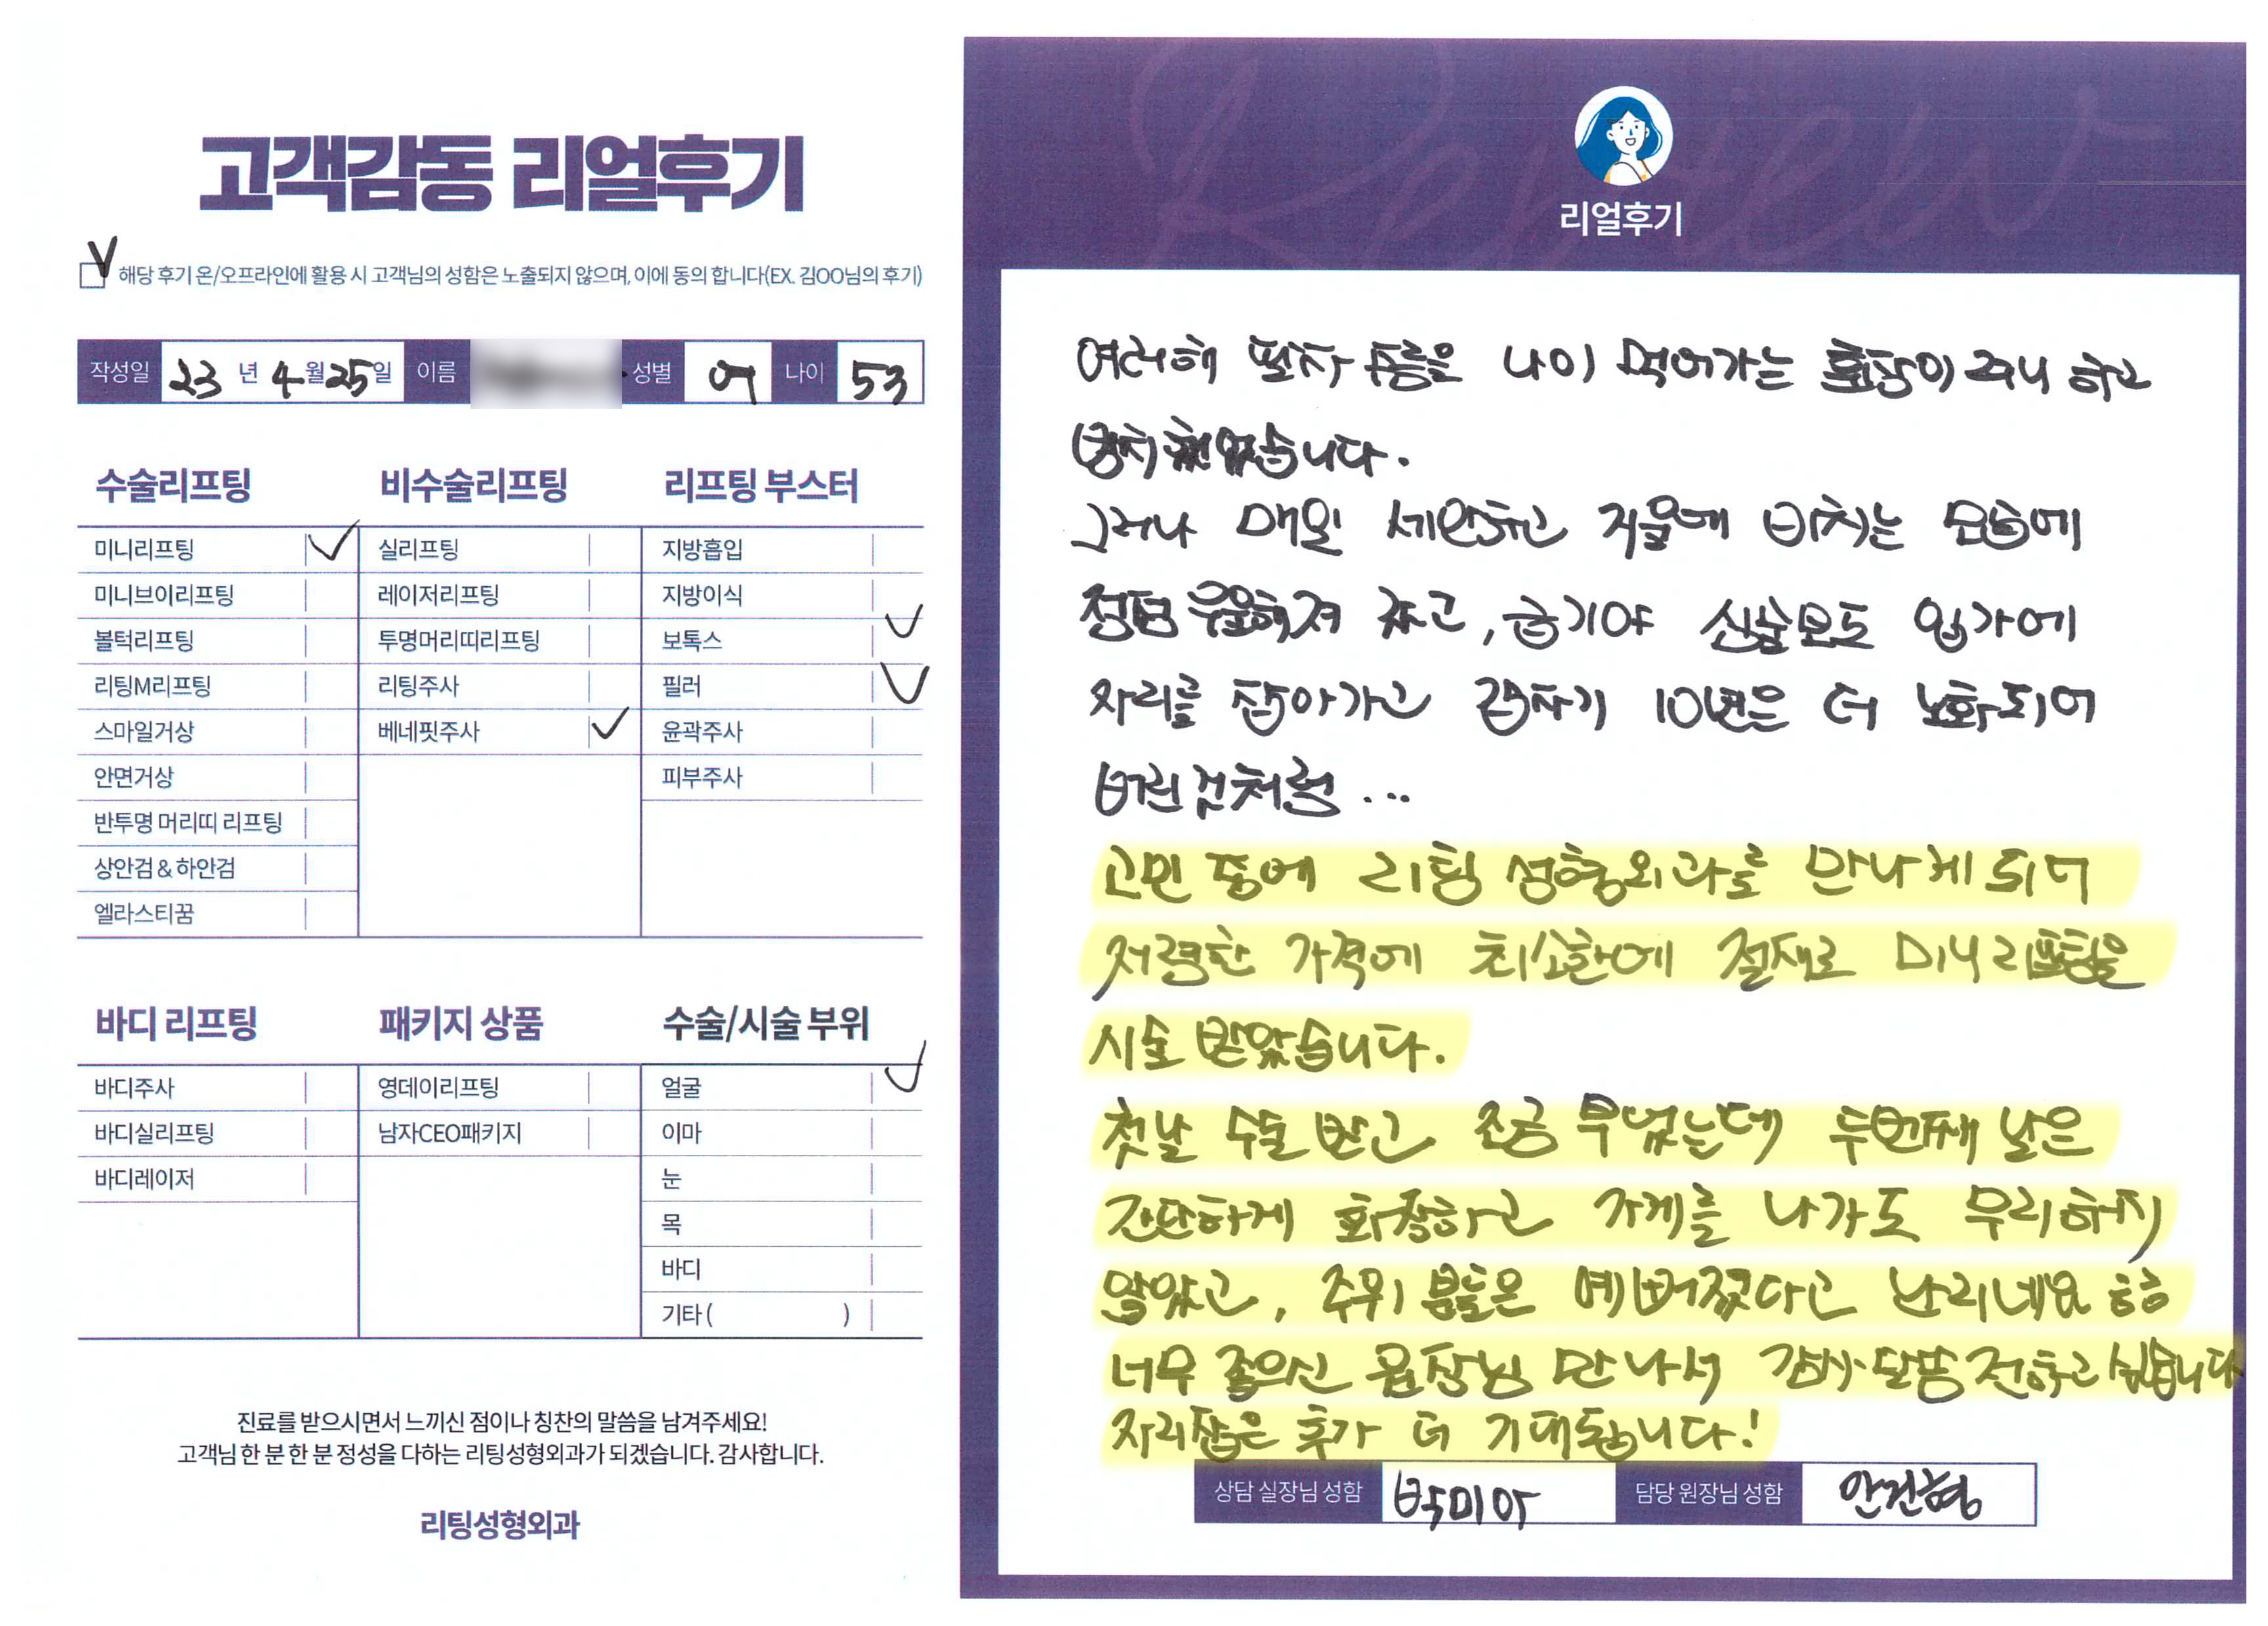 고객감동 리얼후기
해당 후기 온/오프라인에 활용 시 고객님의 성함은 노출되지 않으며, 이에 동의 합니다(EX. 김OO님의 후기)
작성일 23 년 4 월 25 일 이름 성별 여 나이 53
수술리프팅 비수술리프팅 리프팅 부스터
미니리프팅 실리프팅 지방흡입
미니브이리프팅 레이저리프팅 지방이식
볼턱리프팅 투명머리띠리프팅 보톡스
리팅M리프팅 리팅주사 필러
스마일거상 베네핏주사 윤곽주사
안면거상 피부주사
반투명 머리띠 리프팅
상안검 & 하안검
엘라스티꿈
바디 리프팅 패키지 상품 수술/시술 부위
바디주사 영데이리프팅 얼굴
바디실리프팅 남자CEO패키지 이마
바디레이저 눈
목
바디
기타 ( )
진료를 받으시면서 느끼신 점이나 칭찬의 말씀을 남겨주세요!
고객님 한 분 한 분 정성을 다하는 리팅성형외과가 되겠습니다. 감사합니다.
리팅성형외과
Review
리얼후기
여러해 팔자 주름을 나이 먹어가는 훈장이려니 하고
방치했었습니다.
그러나 매일 세안하고 거울에 비치는 모습에
점점 우울해져 갔고, 급기야 심술보도 입가에
자리를 잡아가고 갑자기 10년은 더 노화되어
버린것처럼...
고민 중에 리팅 성형외과를 만나게 되어
저렴한 가격에 최소한에 절제로 미니리프팅을
시술 받았습니다.
첫날 수술 받고 조금 부었는데 두번째 날은
간단하게 화장하고 가게를 나가도 무리하지
않았고, 주위 분들은 예뻐졌다고 난리네요 ㅎㅎ
너무 좋으신 원장님 만나서 감사말씀 전하고 싶습니다
자리잡은 후가 더 기대됩니다!
상담 실장님 성함 박미아 담당 원장님 성함 안건형